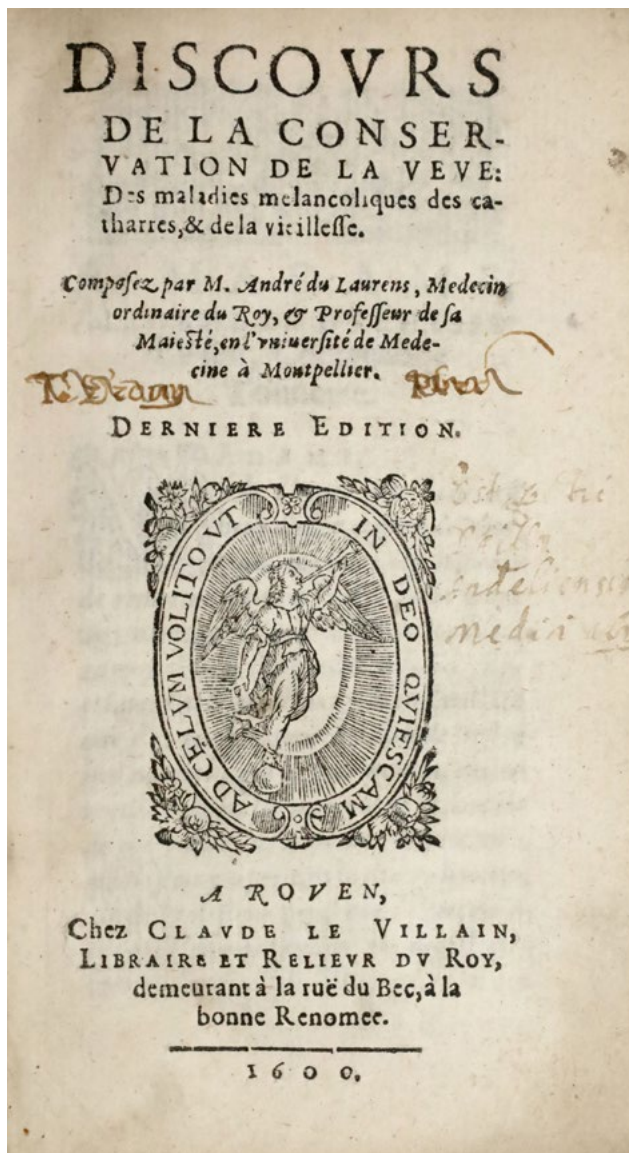 DISCOVRS
DE LA CONSER-
VATION DE LA VEVE:
Des maladies melancoliques des ca-
tharres, & de la vieillesse.
Composez par M. André du Laurens, Medecin
ordinaire du Roy, & Professeur de sa
Maiesté, en l'vniuersité de Mede-
cine à Montpellier.
DERNIERE EDITION.
AD CELVM VOLITO VT IN DEO QVIESCAM
A ROVEN,
Chez CLAVDE LE VILLAIN,
LIBRAIRE ET RELIEVR DV ROY,
demeurant à la ruë du Bec, à la
bonne Renomee.
1600.